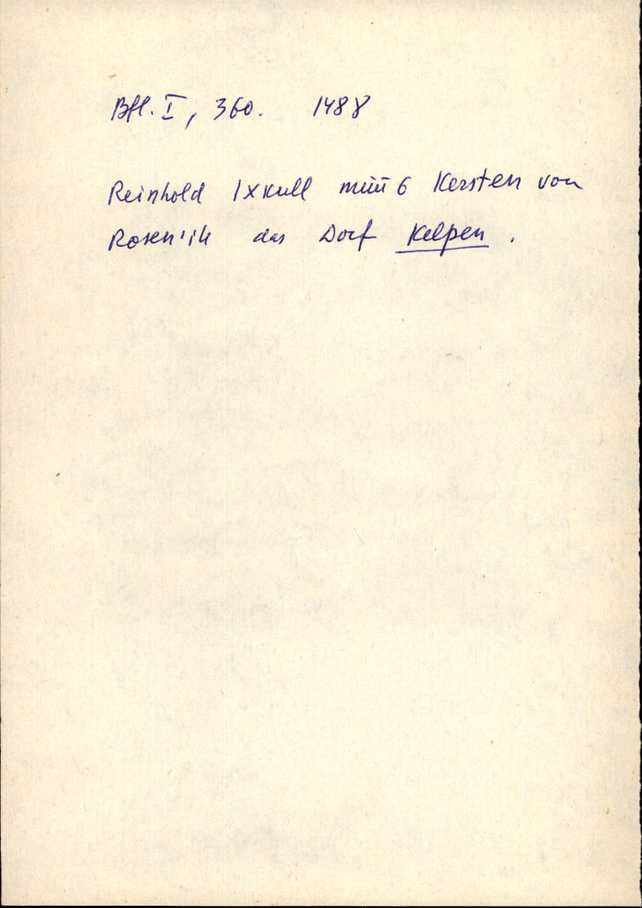 Bfl. I, 360. 1488
Reinhold Ixkull müüb Kersten von
Rosen'ile das Dorf Kelpen.